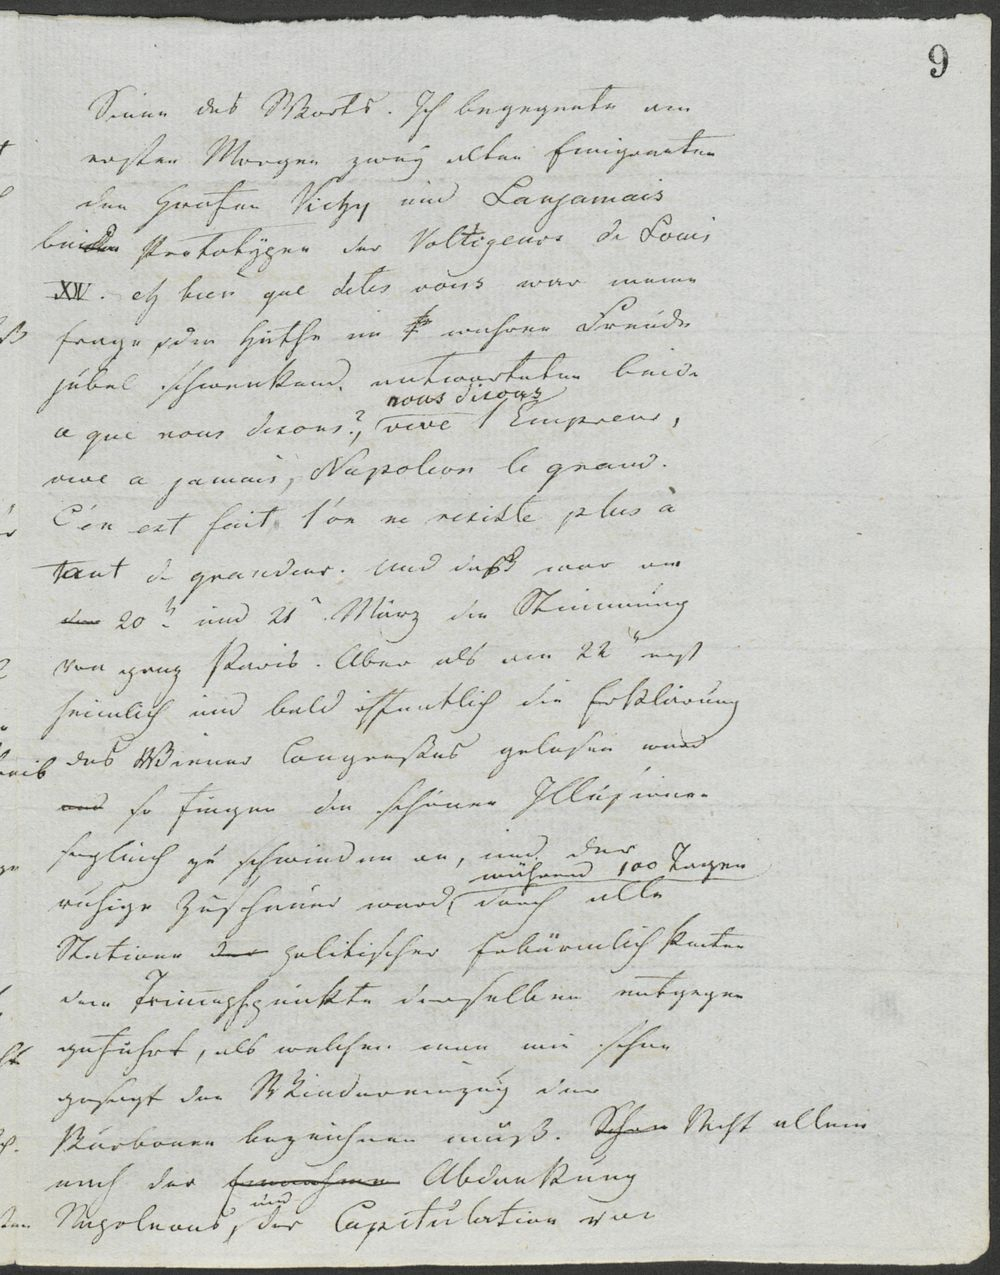 9
Sinne des Worts. Ich begegnete am
ersten Morgen zwey alten Emigranten
den Grafen Vichy und Lanjamais
beiden Prototypen der Voltigeurs de Louis
XIV. eh bien que dites vous war meine
Frage, den Huthe im wahren Freude
jubel schwenkend, antworteten beide
a que nous disons?, nous disons vive l'Empreur,
vive a jamais, Napoleon le grand.
C'en est fait l'on ne resiste plus à
tant de grandeur. Und dieß war am
den 20n und 21n März die Stimmung
von ganz Paris. Aber als am 22n erst
heimlich und bald öffentlich die Erklärung
des Wiener Congreßes gelesen ward
und so fingen die schönen Illusionen
sogleich zu schwinden an, und der
ruhige Zuschauer ward, während 100 Tagen durch alle
Stationen der politischer Erbärmlichkeiten
dem Triumpfpunkte derselben entgegen
geführt, als welchen man wie schon
gesagt den Wiedereinzug der
Burbonen bezeichnen muß. Schon Nicht allein
nach der Abdankung
Napoleons, und der Capitulation von